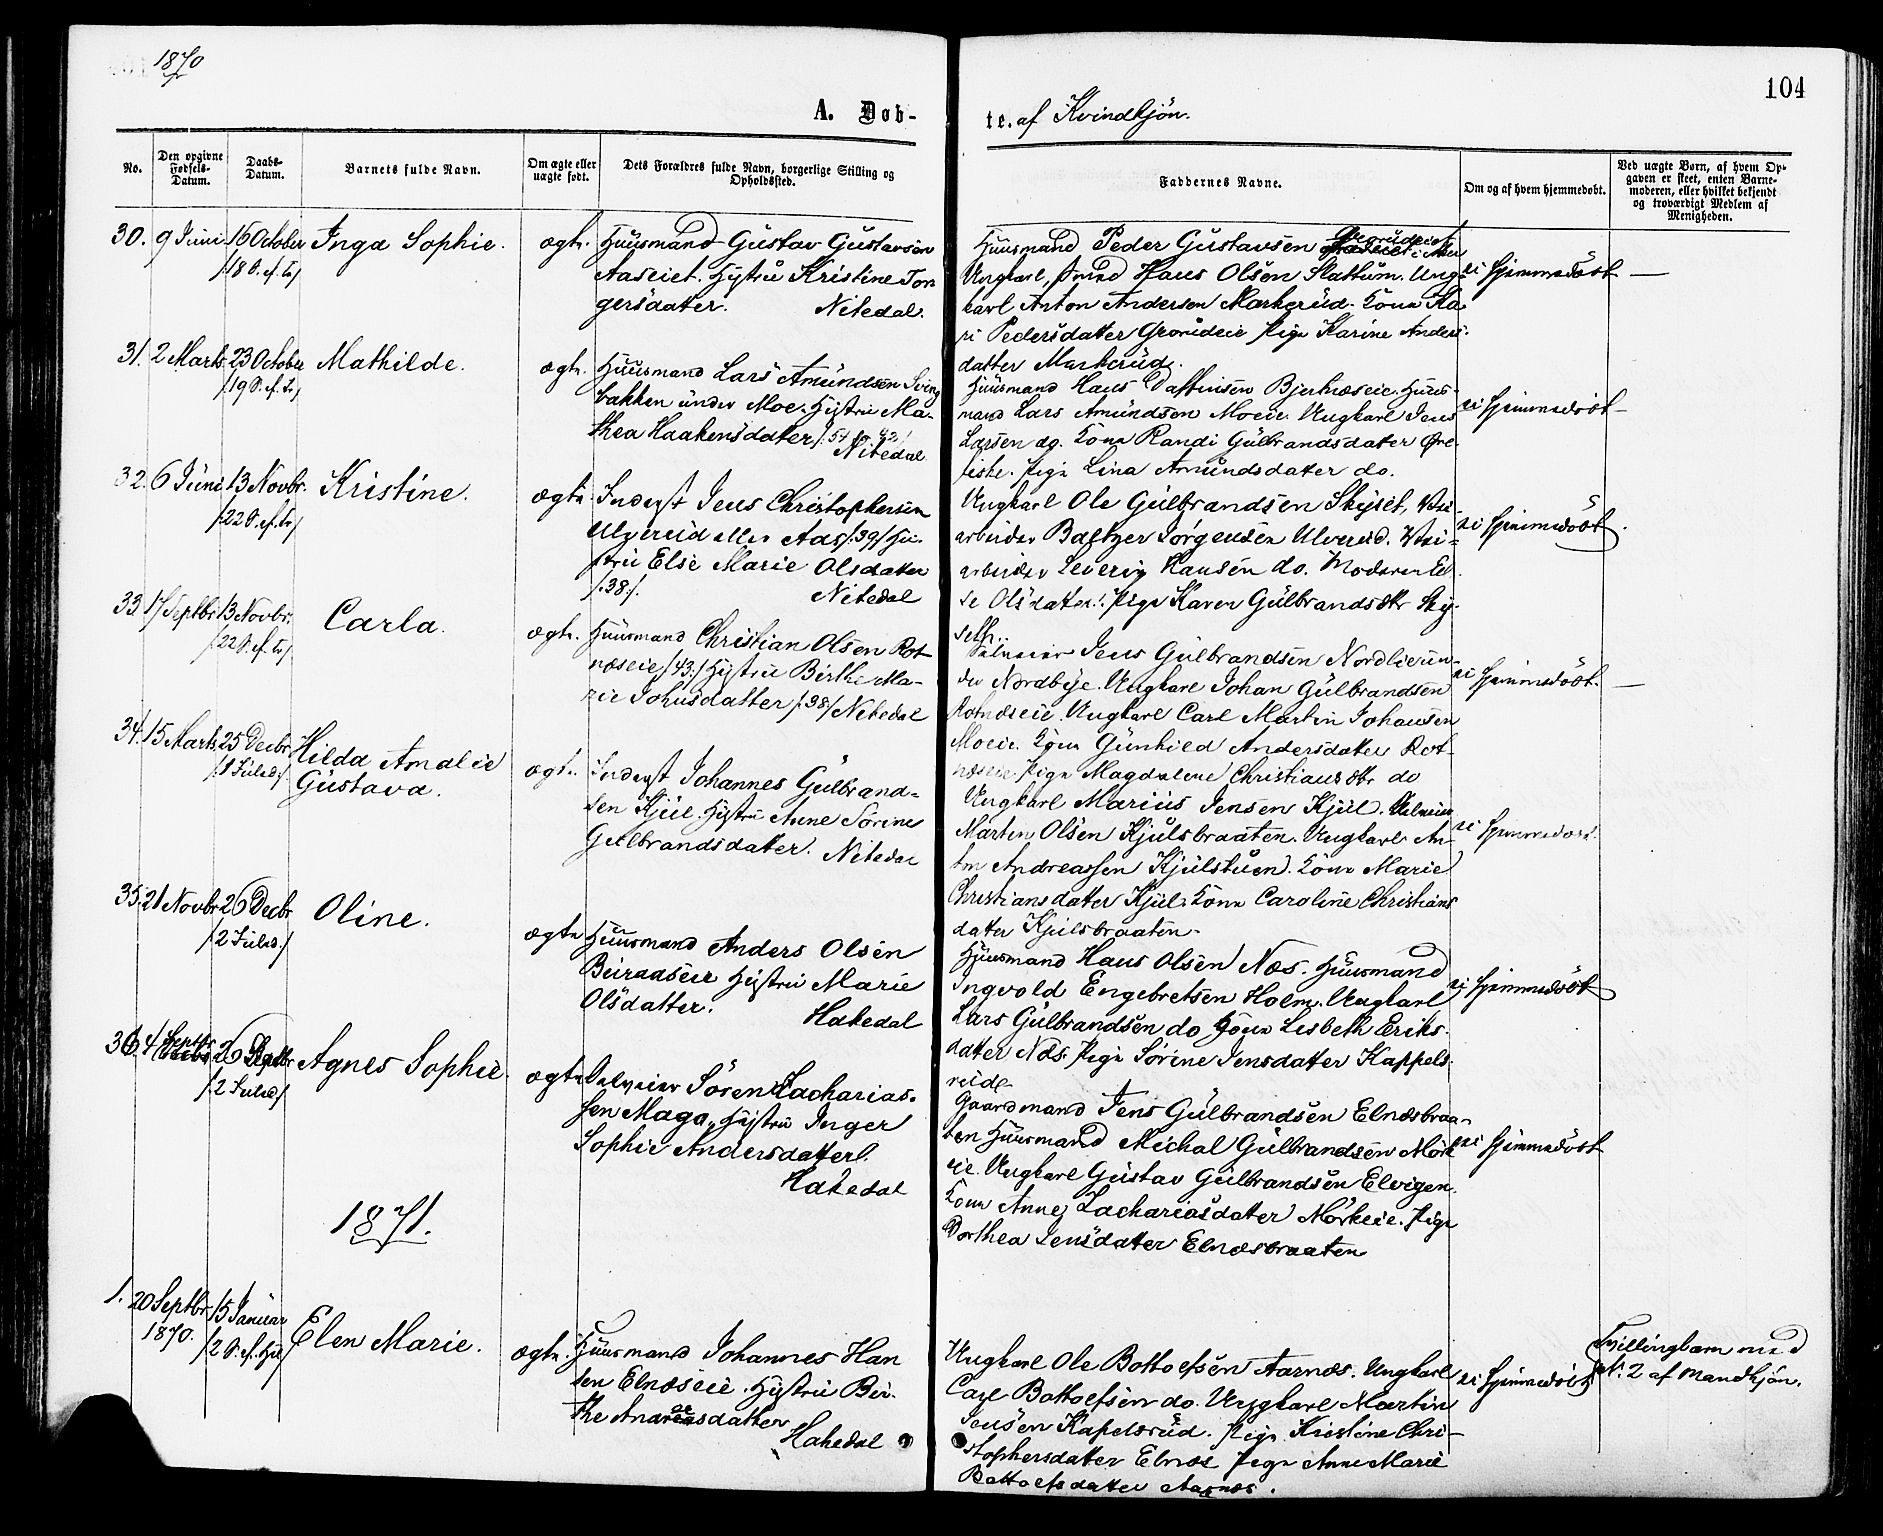 1870
104
A. Døb-
te. af Kvindkjön.
No.
Den opgivne Fødsels-Datum.
Daabs-Datum.
Barnets fulde Navn.
Om ægte eller uægte født.
Dets Forældres fulde Navn, borgerlige Stilling og Opholdssted.
Faddernes Navne.
Om og af hvem hjemmedøbt.
Ved uægte Børn, af hvem Opgaven er skeet, enten Barnemoderen, eller hvilket bekjendt og troværdigt Medlem af Menigheden.
30. 9 Juni 16 October Inga Sophie. ægte.
/18 S. ef. Tr/
Huusmand Gustav Gustavsen
Aaseiet. Hustru Kristine Tor
gersdatter. Nitedal.
Huusmand Peder Gustavsen
Ungkarl, Hans Olsen Slattum. Ung-
karl Anton Andersen Markerud. Kone Ka
ri Pedersdatter Grorudeie Pige Karine Anders
datter Markerud.
ei hjemmedöbt —
31. 2 Marts 23 October Mathilde. ægte.
/19 S. ef. Tr/
Huusmand Lars Amundsen Sving
bakken under Moe. Hustru Ma-
thea Haakensdatter
Nitedal
Huusmand Hans Bjertnæseie. Huus-
mand Lars Amundsen Moeie. Ungkarl Jens
Larsen do. Kone Randi Gulbrandsdater
Pige Lina Amundsdatter do.
ei hjemmedöbt —
32. 6 Juni 13 Novbr. Kristine. ægte
/22 S. ef. Tr/
Inderst Jens Christophersen
Ulverud eller Aas /39/ Hu-
stru Else Marie Olsdatter
/38/. Nitedal
Ungkarl Ole Gulbrandsen Skyset, Vei-
arbeider Baltzer Jørgensen Ulverud. Vei-
arbeider Severin Hansen do. Moderen El
se Olsdatter. Pige Karen Gulbrandsdtr Sky-
seth.
ei hjemmedöbt.
33 17 Septbr 13 Novbr. Carla. ægte.
/22 S. ef. Tr/
Huusmand Christian Olsen Rot
næseie /43/ Hustru Birthe Ma-
rie Johnsdatter /38/ Nitedal
Selveier Jens Gulbrandsen Nordlie un-
der Nordbye. Ungkarl Johan Gulbrandsen
Rotnæseie. Ungkarl Carl Martin Johansen
Moeie. Kone Gunhild Andersdatter Rot-
næseie. Pige Magdalene Christiansdtr do
ei hjemmedöbt. —
34. 15 Marts 25 Decbr. Hilda Amalie
/1 Juled/ Gustava. ægte.
Inderst Johannes Gulbrand-
sen Kjul. Hustru Anne Sorine
Gulbrandsdater. Nitedal
Ungkarl Marius Jensen Kjul. Selveier
Martin Olsen Kjulsbraaten. Ungkarl An-
ton Andreassen Kjulstuen. Kone Marie
Christiansdatter Kjul. Kone Caroline Christians
dater Kjulsbraaten.
ei hjemmedöbt.
35. 21 Novbr 26 Decbr Oline. ægte
/2 Juled./
Huusmand Anders Olsen
Hustru Marie
Olsdatter. Hakedal
Huusmand Hans Olsen Næs. Huusmand
Ingvold Engebretsen Holm. Ungkarl
Lars Gulbrandsen do Kone Lisbeth Eriks
datter Næs. Pige Sørine Jensdatter Kappels
rud.
ei hjemmedöbt
36 4 Septbr 26 Decbr Agnes Sophie. ægte
/2 Juled/
Selveier Sören Zacharias-
sen Maga. Hustru Inger
Sophie Andersdatter.
Hakedal
Gaardmand Jens Gulbrandsen Elnæsbraa-
ten Huusmand Michal Gulbrandsen Mörk
eie. Ungkarl Gustav Gulbrandsen Elvigen.
Kone Anne Zachariasdater Mörkeie. Pige
Dorthea Jensdatter Elnæsbraaten
ei hjemmedöbt
1871.
1. 20 Septbr 15 Januar Elen Marie. ægte.
1870. /2 S. ef. Hel/
Huusmand Johannes Han
sen Elnæseie. Hustru Bir-
the Andreasdatter
Hakedal
Ungkarl Ole Bottolfsen Aarnæs. Ungkarl
Carl Bottolfsen do. Ungkarl Martin
Jensen Kapelsrud. Pige Kristine Chri-
stophersdatter Elnæs Pige Anne Marie
Bottolfsdatter Aarnæs.
ei hjemmedöbt
Tvillingbarn med
N. 2 af Mandkjön.